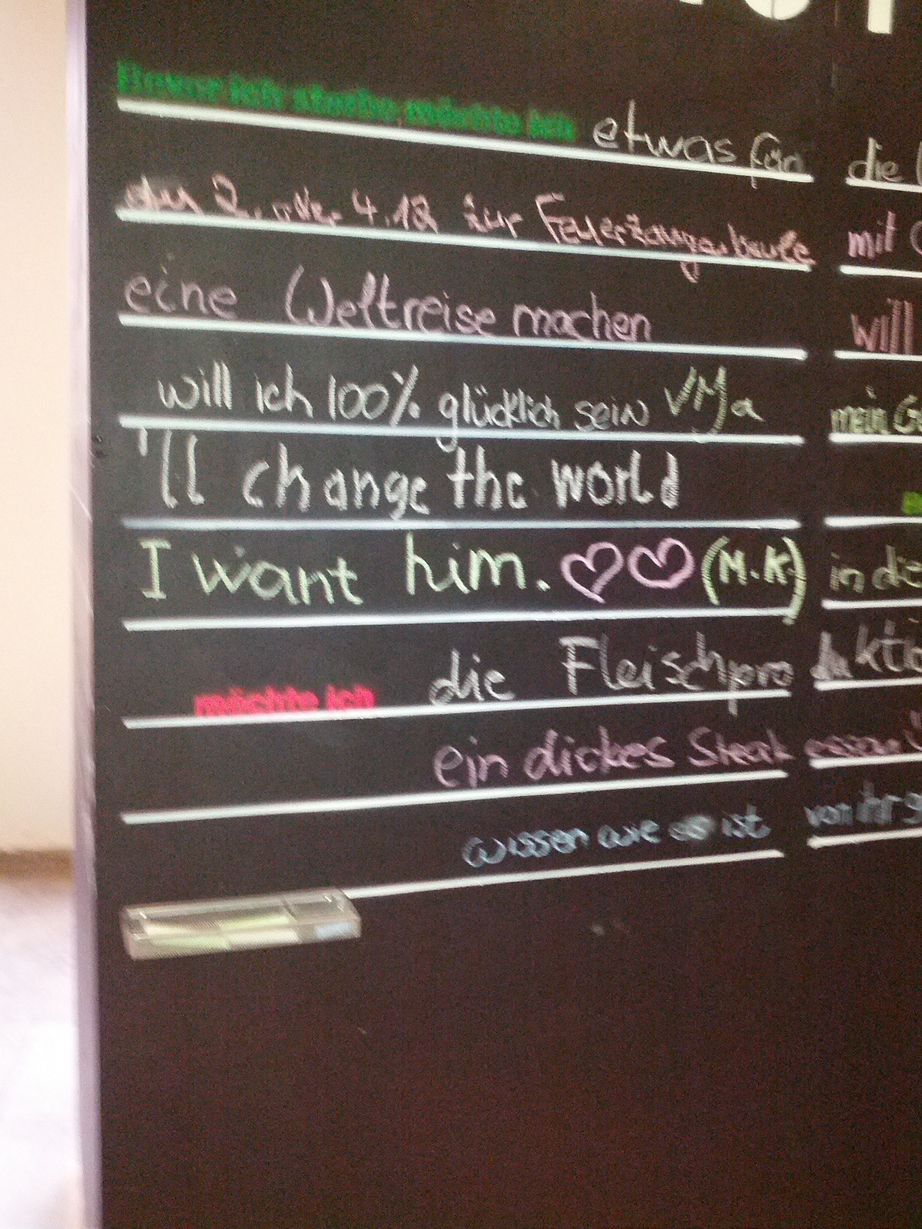 Bevor ich sterbe, möchte ich etwas für die
den 2. oder 4.12 zur Feuerzangenbowle mit
eine Weltreise machen will
will ich 100% glücklich sein VMa mein
'll change the world
I want him. ♡♡ (M.K.) in die
möchte ich die Fleischpro
ein dickes Steak essen
wissen wie es ist von ihr